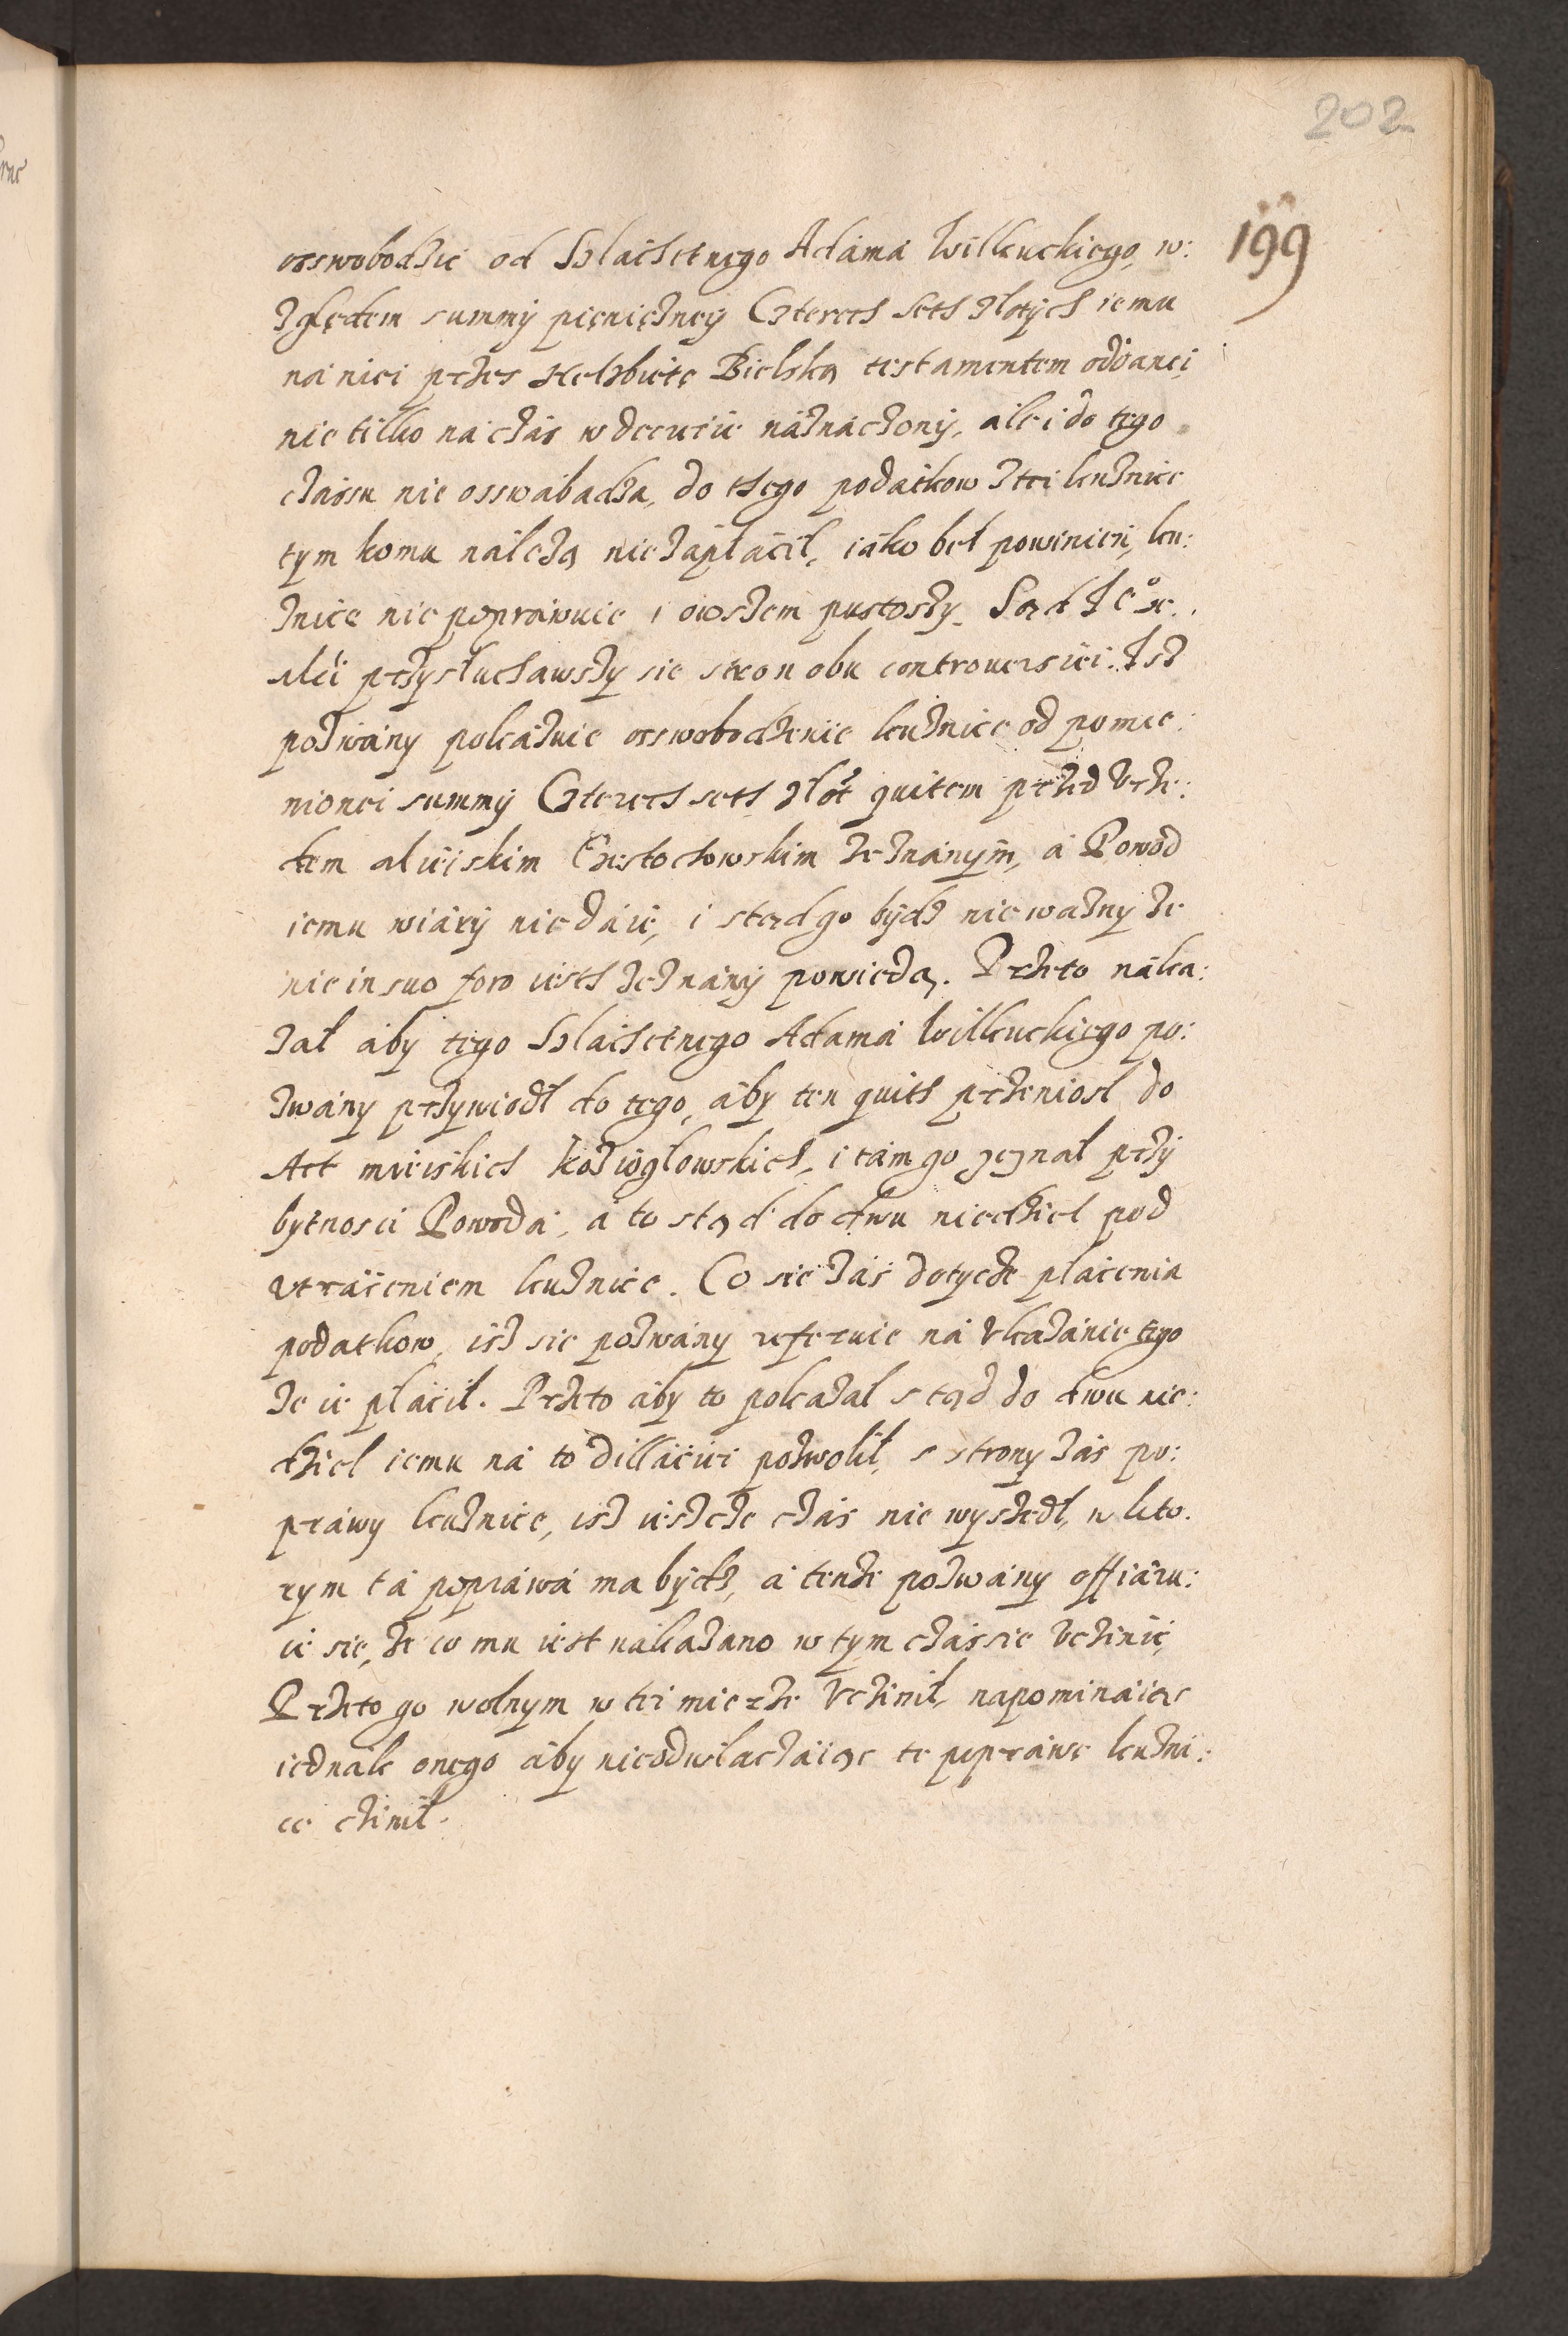 202
199
osswobodzic od Szlachetnego Adama Wilkuckiego, w:
zględem summy pięniężney Czterech seth złotych iemu
na niei przes Helzbietę Bielską testamentem oddanei,
nie tilko na czas w decrecie náznáczony, ale i do tego
czássu nie osswabadza, do thego podatkow z tei kuźnice
tym komu náleżą nie zápłácił, iáko beł powinien, ku:
znice nie popráwuie i owszem pustoszy. Sąd Je° K.
Mći przysłuchawszy sie stron obu controuersiei: Isz
pozwány pokázuie osswobodzenie kuźnice od pomie:
nionei summy Czterech seth złot quitem przed Vrzę:
dem mieiskim Częstochowskim zeznánym, á Powod
iemu wiáry nie dáie, i stąd go bydz nieważny że
nie in suo foro iesth zeznány powieda. Przeto náka:
zał áby tego Szlachetnego Adamá Wilkuckiego po:
zwány przywiodł do tego, áby ten quith przeniosł do
Act mieiskich Koziogłowskich, i tám go zeznał przy
bytnosci Powodá, á to stąd do dwu niedziel pod
vtráceniem kuźnice. Co sie zás dotycze płácenia
podatkow, isz sie pozwány referuie ná Vkazánie tego
że ie płácił. Przeto áby to pokazał stąd do dwu nie:
dziel iemu ná to dilláciei pozwolił, s strony zás po:
práwy kuźnice, isz iescze czás nie wyszedł, w kto:
rym tá popráwá ma bydz, á tenże pozwány offiáru:
ie sie, że co mu iest nakazano w tym czássie Vczinić,
Przeto go wolnym w tei mierze Vczinił, nápomináiąc
iednak onego áby nieodwłaczáiąc te popráwę kuźni:
ce czinił.